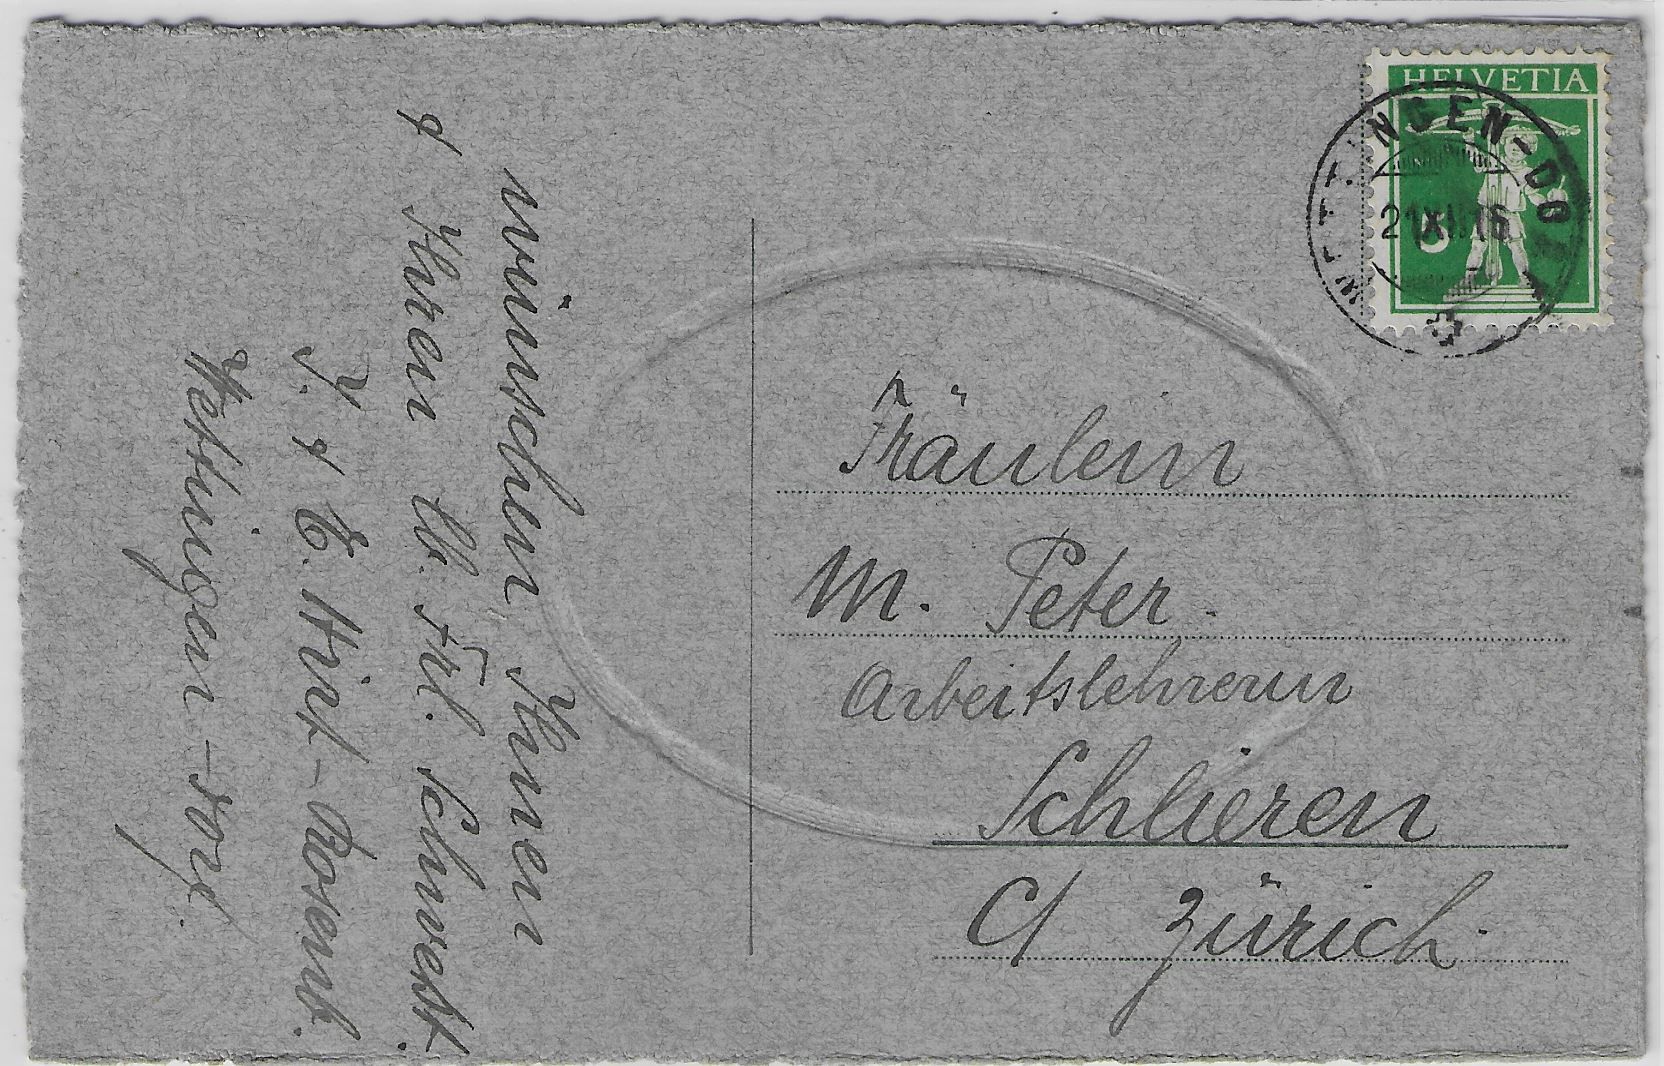 HELVETIA
WETTINGEN-DO
5
wünschen Ihnen
& Ihren lb. Frl. Schwest.
J. & E. Hirt-Bosenb.
Wettingen-dorf.
Fräulein
M. Peter.
Arbeitslehrerin
Schlieren
Ct Zürich.